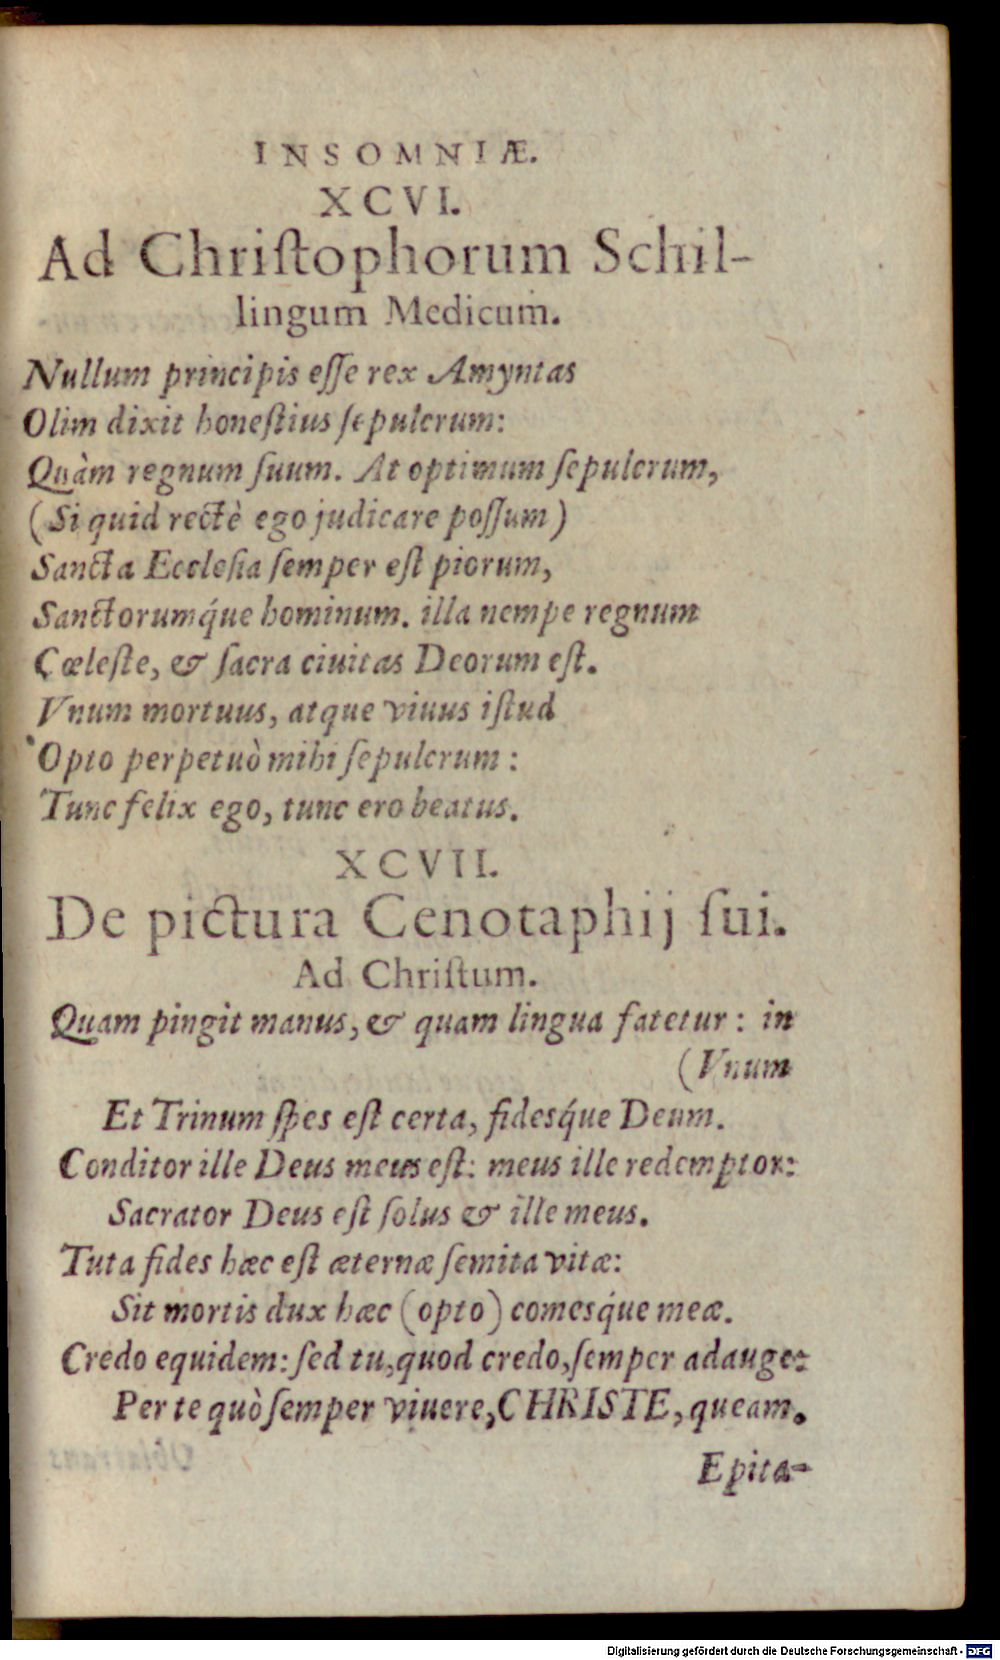 INSOMNIÆ.
XCVI.
Ad Chriſtophorum Schil-
lingum Medicum.
Nullum principis eſſe rex Amyntas
Olim dixit honeſtius ſepulcrum:
Quàm regnum ſuum. At optimum ſepulcrum,
(Si quid rectè ego judicare poſſum)
Sancta Eccleſia ſemper eſt piorum,
Sanctorumq́ue hominum. illa nempe regnum
Cœleſte, & ſacra ciuitas Deorum eſt.
Vnum mortuus, atque viuus iſtud
Opto perpetuò mihi ſepulcrum:
Tunc felix ego, tunc ero beatus.
XCVII.
De pictura Cenotaphij ſui.
Ad Chriſtum.
Quam pingit manus, & quam lingua fatetur: in
(Vnum
Et Trinum ſpes eſt certa, fidesq́ue Deum.
Conditor ille Deus meus eſt: meus ille redemptor:
Sacrator Deus eſt ſolus & ille meus.
Tuta fides hæc eſt æternæ ſemita vitæ:
Sit mortis dux hæc (opto) comesq́ue meæ.
Credo equidem: ſed tu, quod credo, ſemper adauge:
Per te quò ſemper viuere, CHRISTE, queam.
Epita-
Digitalisierung gefördert durch die Deutsche Forschungsgemeinschaft - DFG